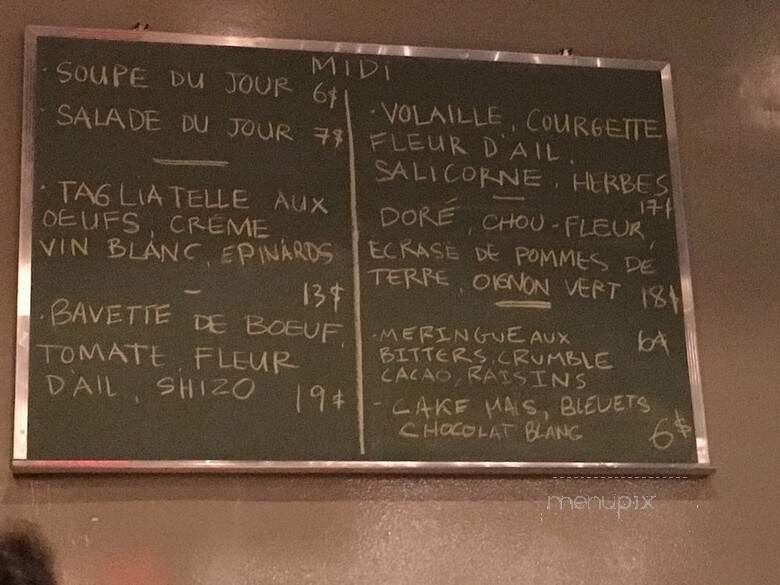 MIDI
· SOUPE DU JOUR 6$
· SALADE DU JOUR 7$
· TAGLIATELLE AUX
OEUFS, CRÉME
VIN BLANC, EPINARDS
13$
· BAVETTE DE BOEUF,
TOMATE, FLEUR
D'AIL, SHIZO 19$
· VOLAILLE, COURGETTE
FLEUR D'AIL,
SALICORNE, HERBES
17$
DORÉ, CHOU-FLEUR,
ECRASE DE POMMES DE
TERRE, OIGNON VERT 18$
· MERINGUE AUX 6$
BITTERS, CRUMBLE
CACAO, RAISINS
- CAKE MAIS, BLEUETS
CHOCOLAT BLANC 6$
menupix